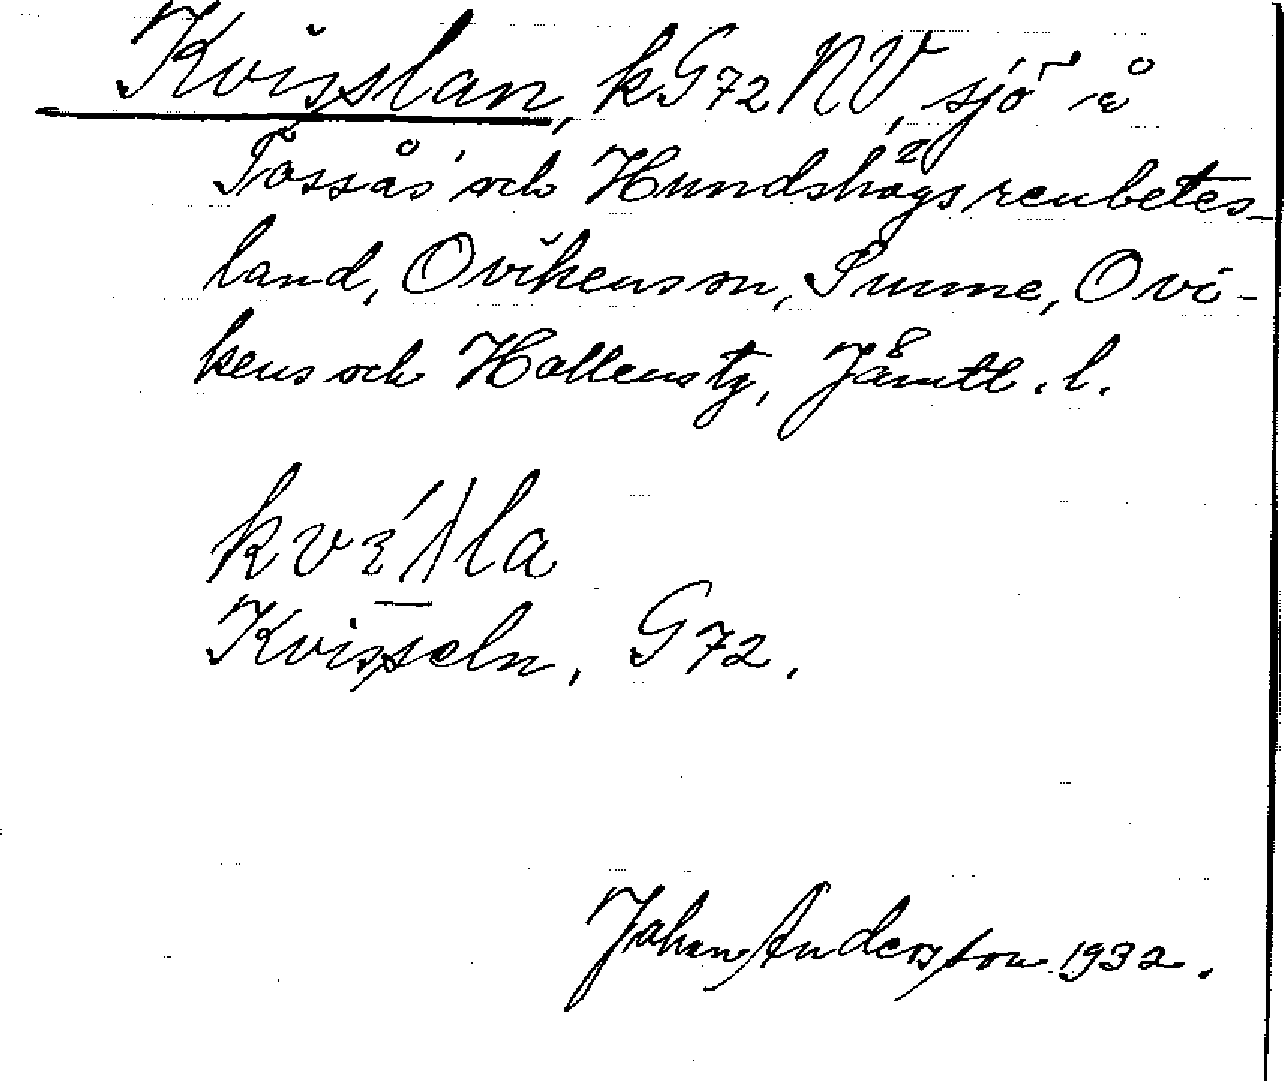 Kvisslan, kG72NV, sjö å
Tossås och Hundshågs renbetes-
land, Ovikens sn, Sunne, Ovi-
kens och Hallens tg, Jämtl. l.
la
Kvisseln, G72.
Johan Andersson 1932.